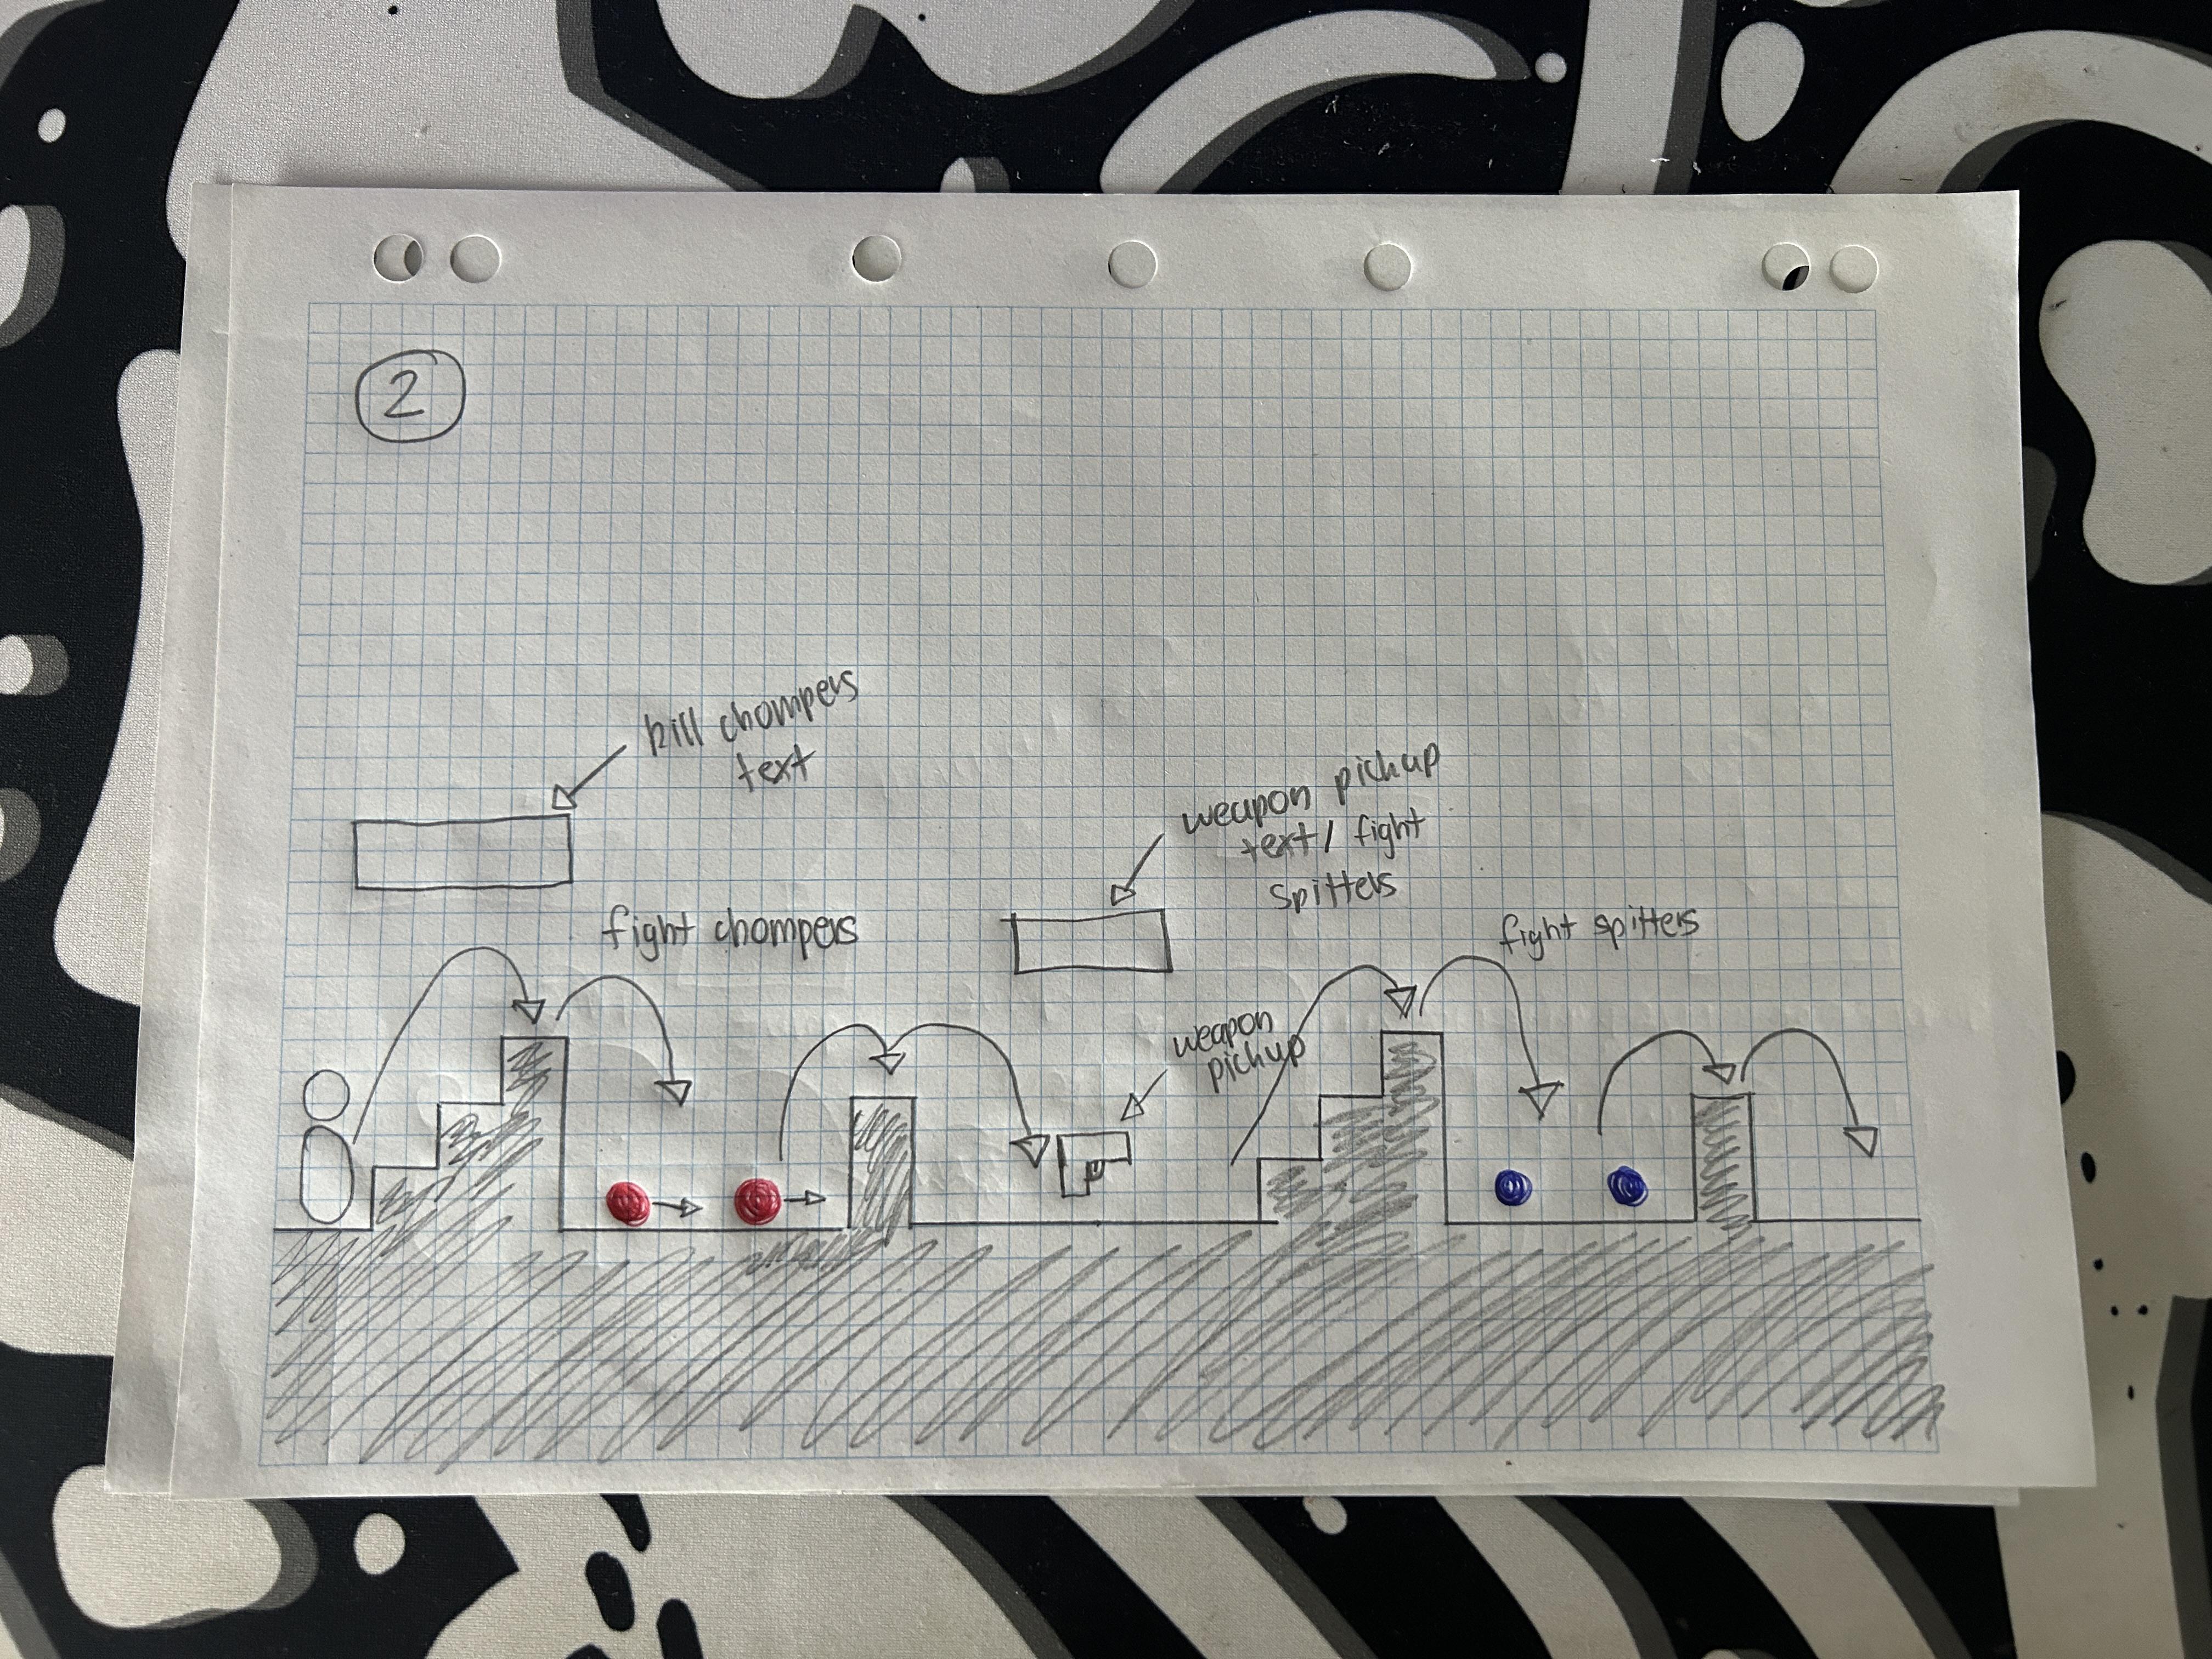 2
kill chompers
text
weapon pickup
text / fight
spitters
fight chompers
fight spitters
weapon
pickup